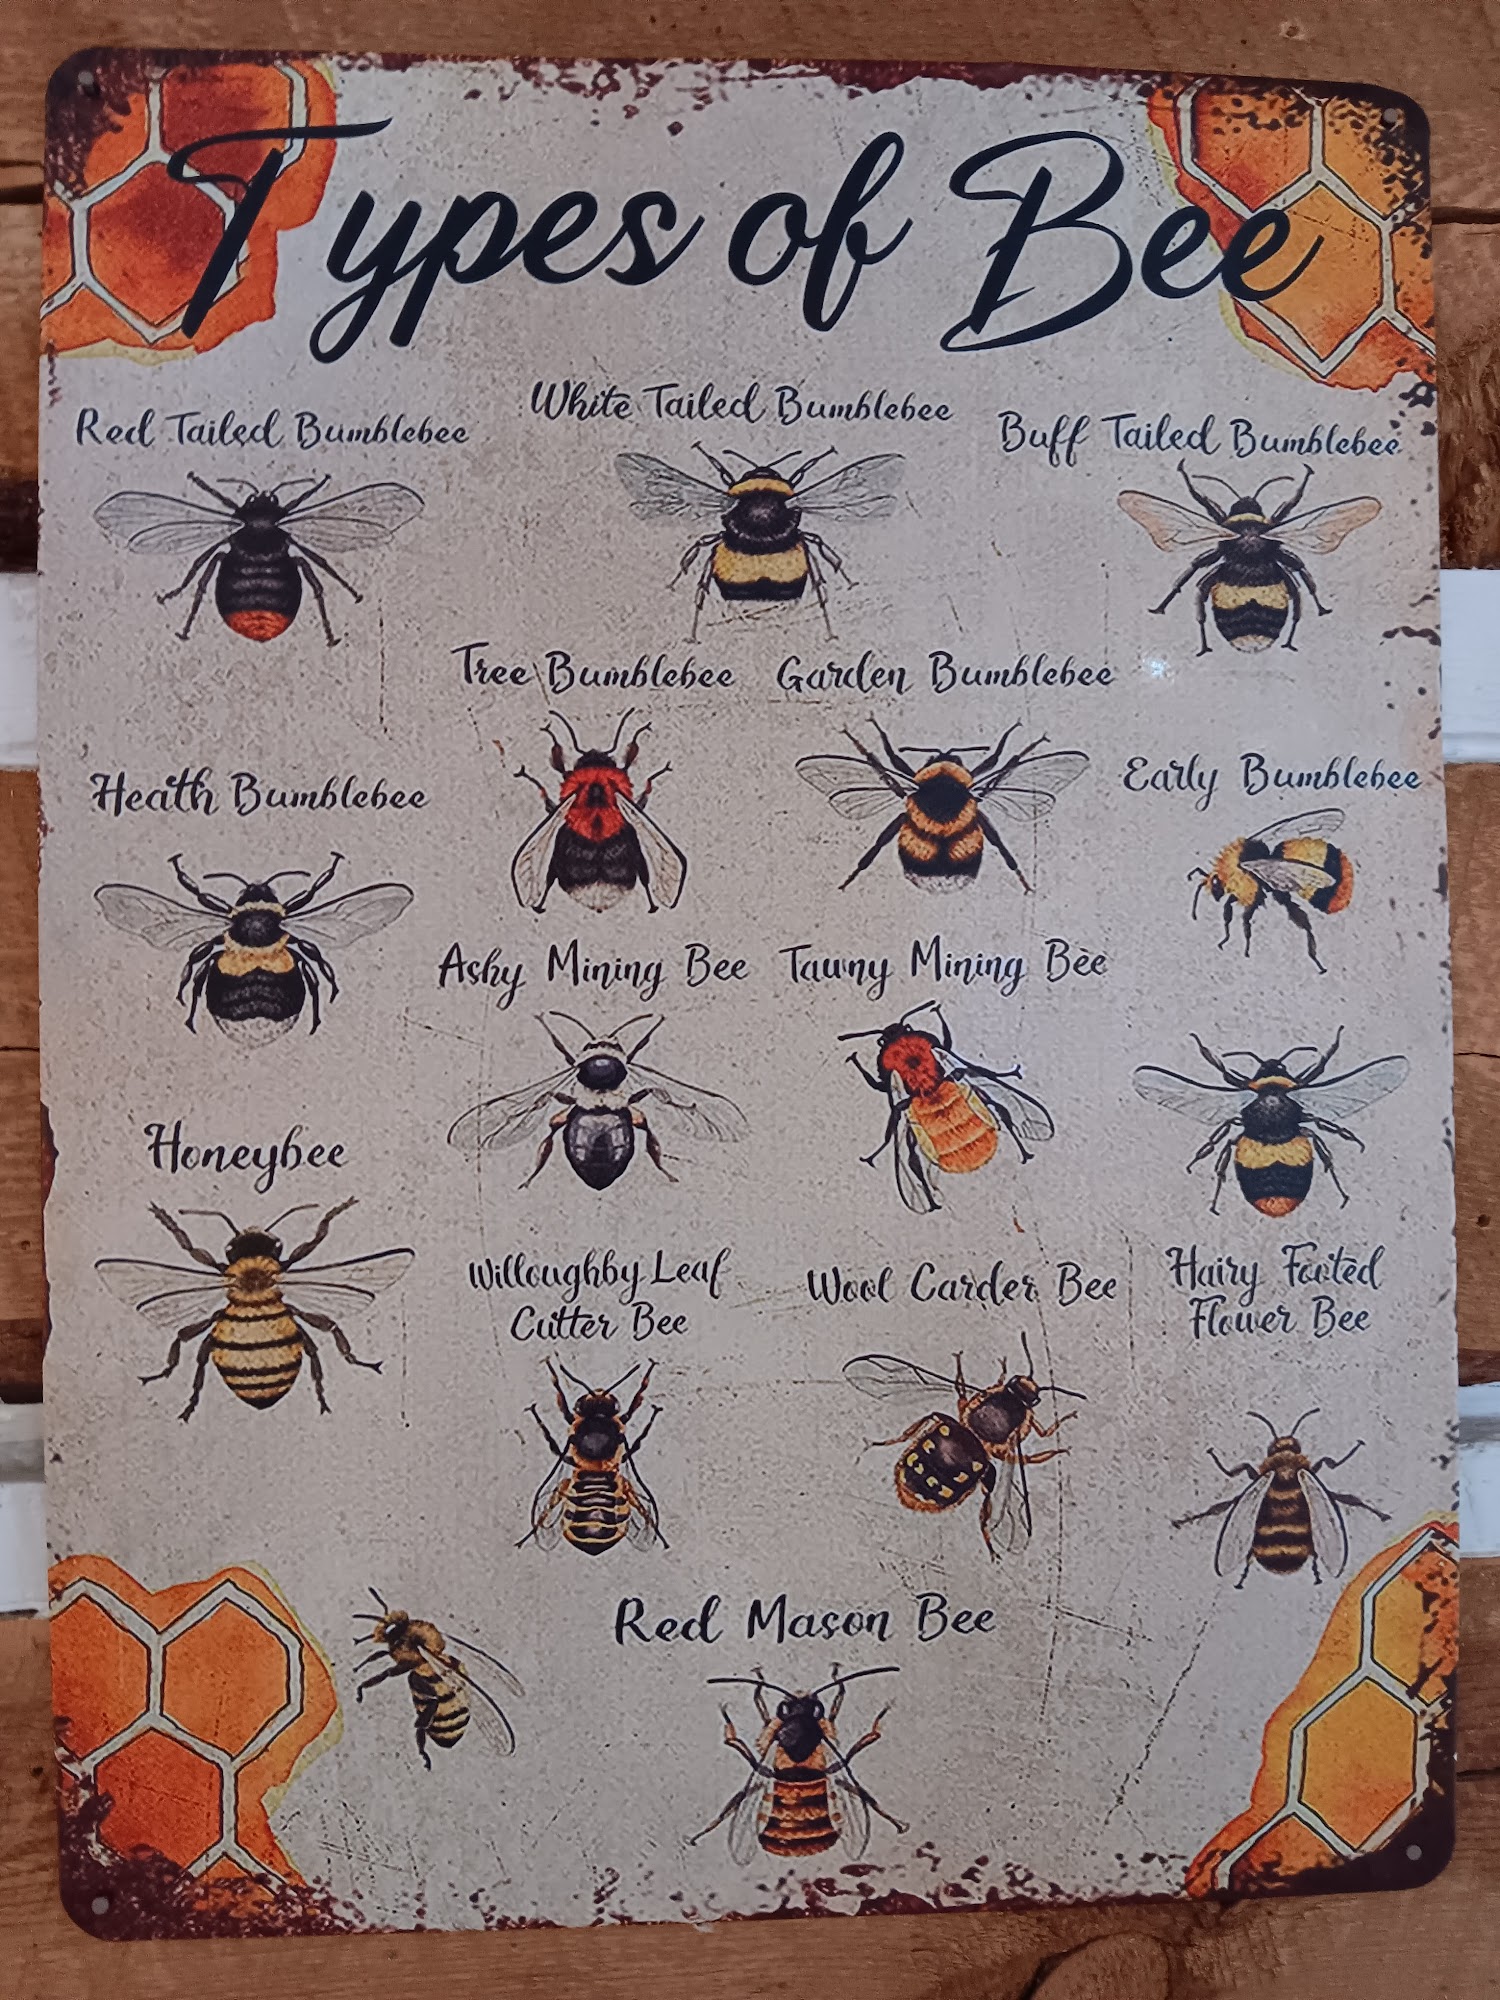 Types of Bee
Red Tailed Bumblebee
White Tailed Bumblebee
Buff Tailed Bumblebee
Tree Bumblebee
Garden Bumblebee
Heath Bumblebee
Early Bumblebee
Ashy Mining Bee
Tawny Mining Bee
Honeybee
Willoughby Leaf
Cutter Bee
Wool Carder Bee
Hairy Footed
Flower Bee
Red Mason Bee